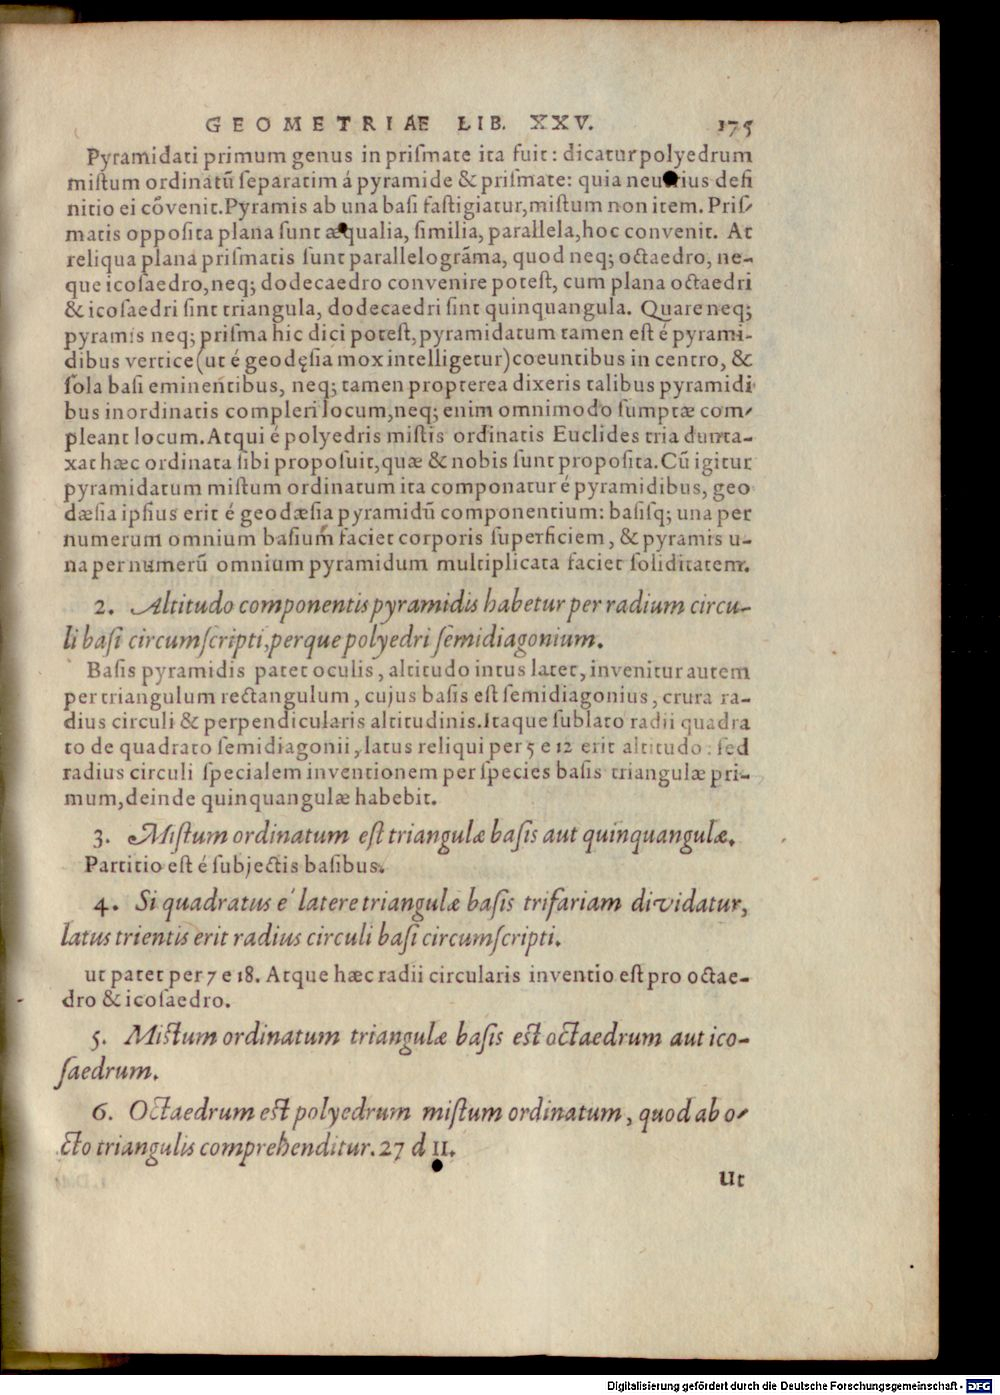 GEOMETRIÆ LIB. XXV. 175
Pyramidati primum genus in priſmate ita fuit: dicatur polyedrum
miſtum ordinatū ſeparatim á pyramide & priſmate: quia neutrius defi
nitio ei cōvenit. Pyramis ab una baſi faſtigiatur, miſtum non item. Priſ-
matis oppoſita plana ſunt æqualia, ſimilia, parallela, hoc convenit. At
reliqua plana priſmatis ſunt parallelogrāma, quod neq; octaedro, ne-
que icoſaedro, neq; dodecaedro convenire poteſt, cum plana octaedri
& icoſaedri ſint triangula, dodecaedri ſint quinquangula. Quare neq;
pyramis neq; priſma hic dici poteſt, pyramidatum tamen eſt é pyrami-
dibus vertice (ut é geodęſia mox intelligetur) coeuntibus in centro, &
ſola baſi eminentibus, neq; tamen propterea dixeris talibus pyramidi
bus inordinatis compleri locum, neq; enim omnimodo ſumptæ com-
pleant locum. Atqui é polyedris miſtis ordinatis Euclides tria dunta-
xat hæc ordinata ſibi propoſuit, quæ & nobis ſunt propoſita. Cū igitur
pyramidatum miſtum ordinatum ita componatur é pyramidibus, geo
dæſia ipſius erit é geodæſia pyramidū componentium: baſiſq; una per
numerum omnium baſium faciet corporis ſuperficiem, & pyramis u-
na per numerū omnium pyramidum multiplicata faciet ſoliditatem.
2. Altitudo componentis pyramidis habetur per radium circu-
li baſi circumſcripti, perque polyedri ſemidiagonium.
Baſis pyramidis patet oculis, altitudo intus latet, invenitur autem
per triangulum rectangulum, cujus baſis eſt ſemidiagonius, crura ra-
dius circuli & perpendicularis altitudinis. Itaque ſublato radii quadra
to de quadrato ſemidiagonii, latus reliqui per 5 e 12 erit altitudo: ſed
radius circuli ſpecialem inventionem per ſpecies baſis triangulæ pri-
mum, deinde quinquangulæ habebit.
3. Miſtum ordinatum eſt triangulæ baſis aut quinquangulæ.
Partitio eſt é ſubjectis baſibus.
4. Si quadratus é latere triangulæ baſis trifariam dividatur,
latus trientis erit radius circuli baſi circumſcripti.
ut patet per 7 e 18. Atque hæc radii circularis inventio eſt pro octae-
dro & icoſaedro.
5. Mictum ordinatum triangulæ baſis eſt octaedrum aut ico-
ſaedrum.
6. Octaedrum eſt polyedrum miſtum ordinatum, quod ab o-
cto triangulis comprehenditur. 27 d 11.
Ut
Digitalisierung gefördert durch die Deutsche Forschungsgemeinschaft - DFG